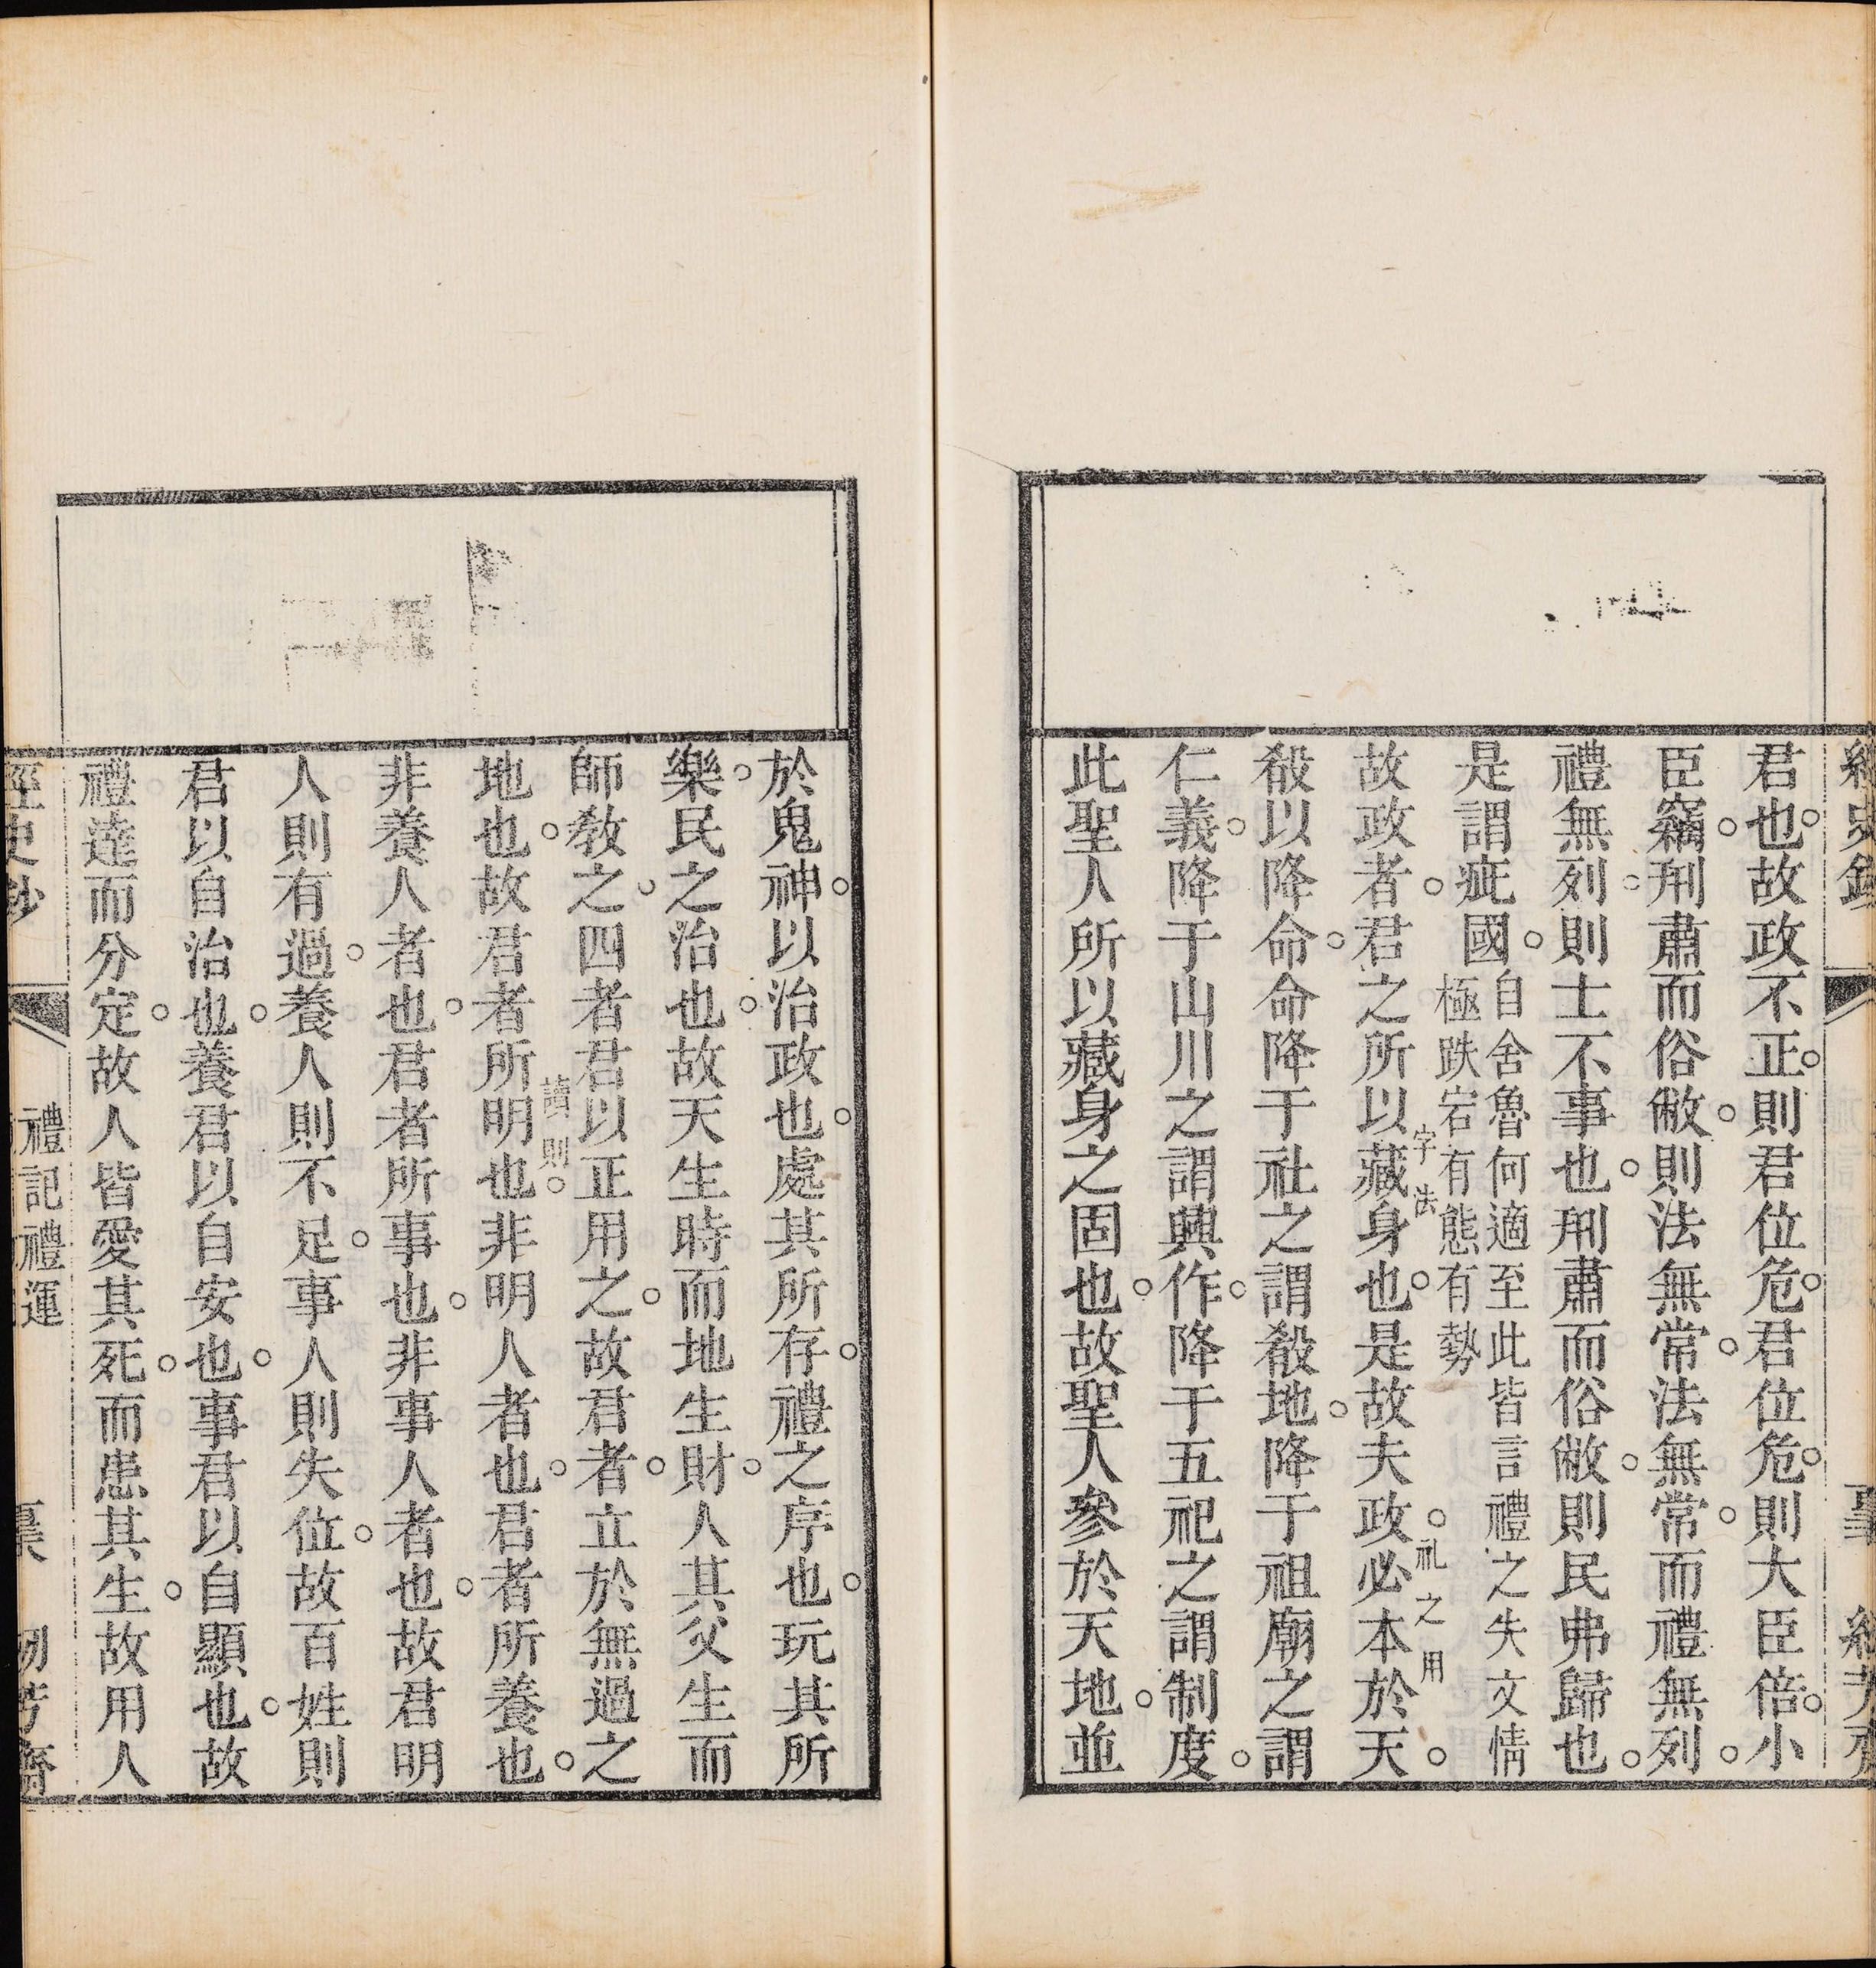 君也故政不正則君位危君位危則大臣倍小
臣竊刑肅而俗敝則法無常法無常而禮無列
禮無列則士不事也刑肅而俗敝則民弗歸也
是謂疵國
自舍魯何適至此皆言禮之失文情
極跌宕有態有勢
字法
故政者君之所以藏身也是故夫政必本於天
礼之用
殽以降命命降于社之謂殽地降于祖廟之謂
仁義降于山川之謂興作降于五祀之謂制度
此聖人所以藏身之固也故聖人參於天地並
於鬼神以治政也處其所存禮之序也玩其所
樂民之治也故天生時而地生財人其父生而
師教之四者君以正用之故君者立於無過之
讀則
地也故君者所明也非明人者也君者所養也
非養人者也君者所事也非事人者也故君明
人則有過養人則不足事人則失位故百姓則
君以自治也養君以自安也事君以自顯也故
禮達而分定故人皆愛其死而患其生故用人
經史鈔
禮記禮運